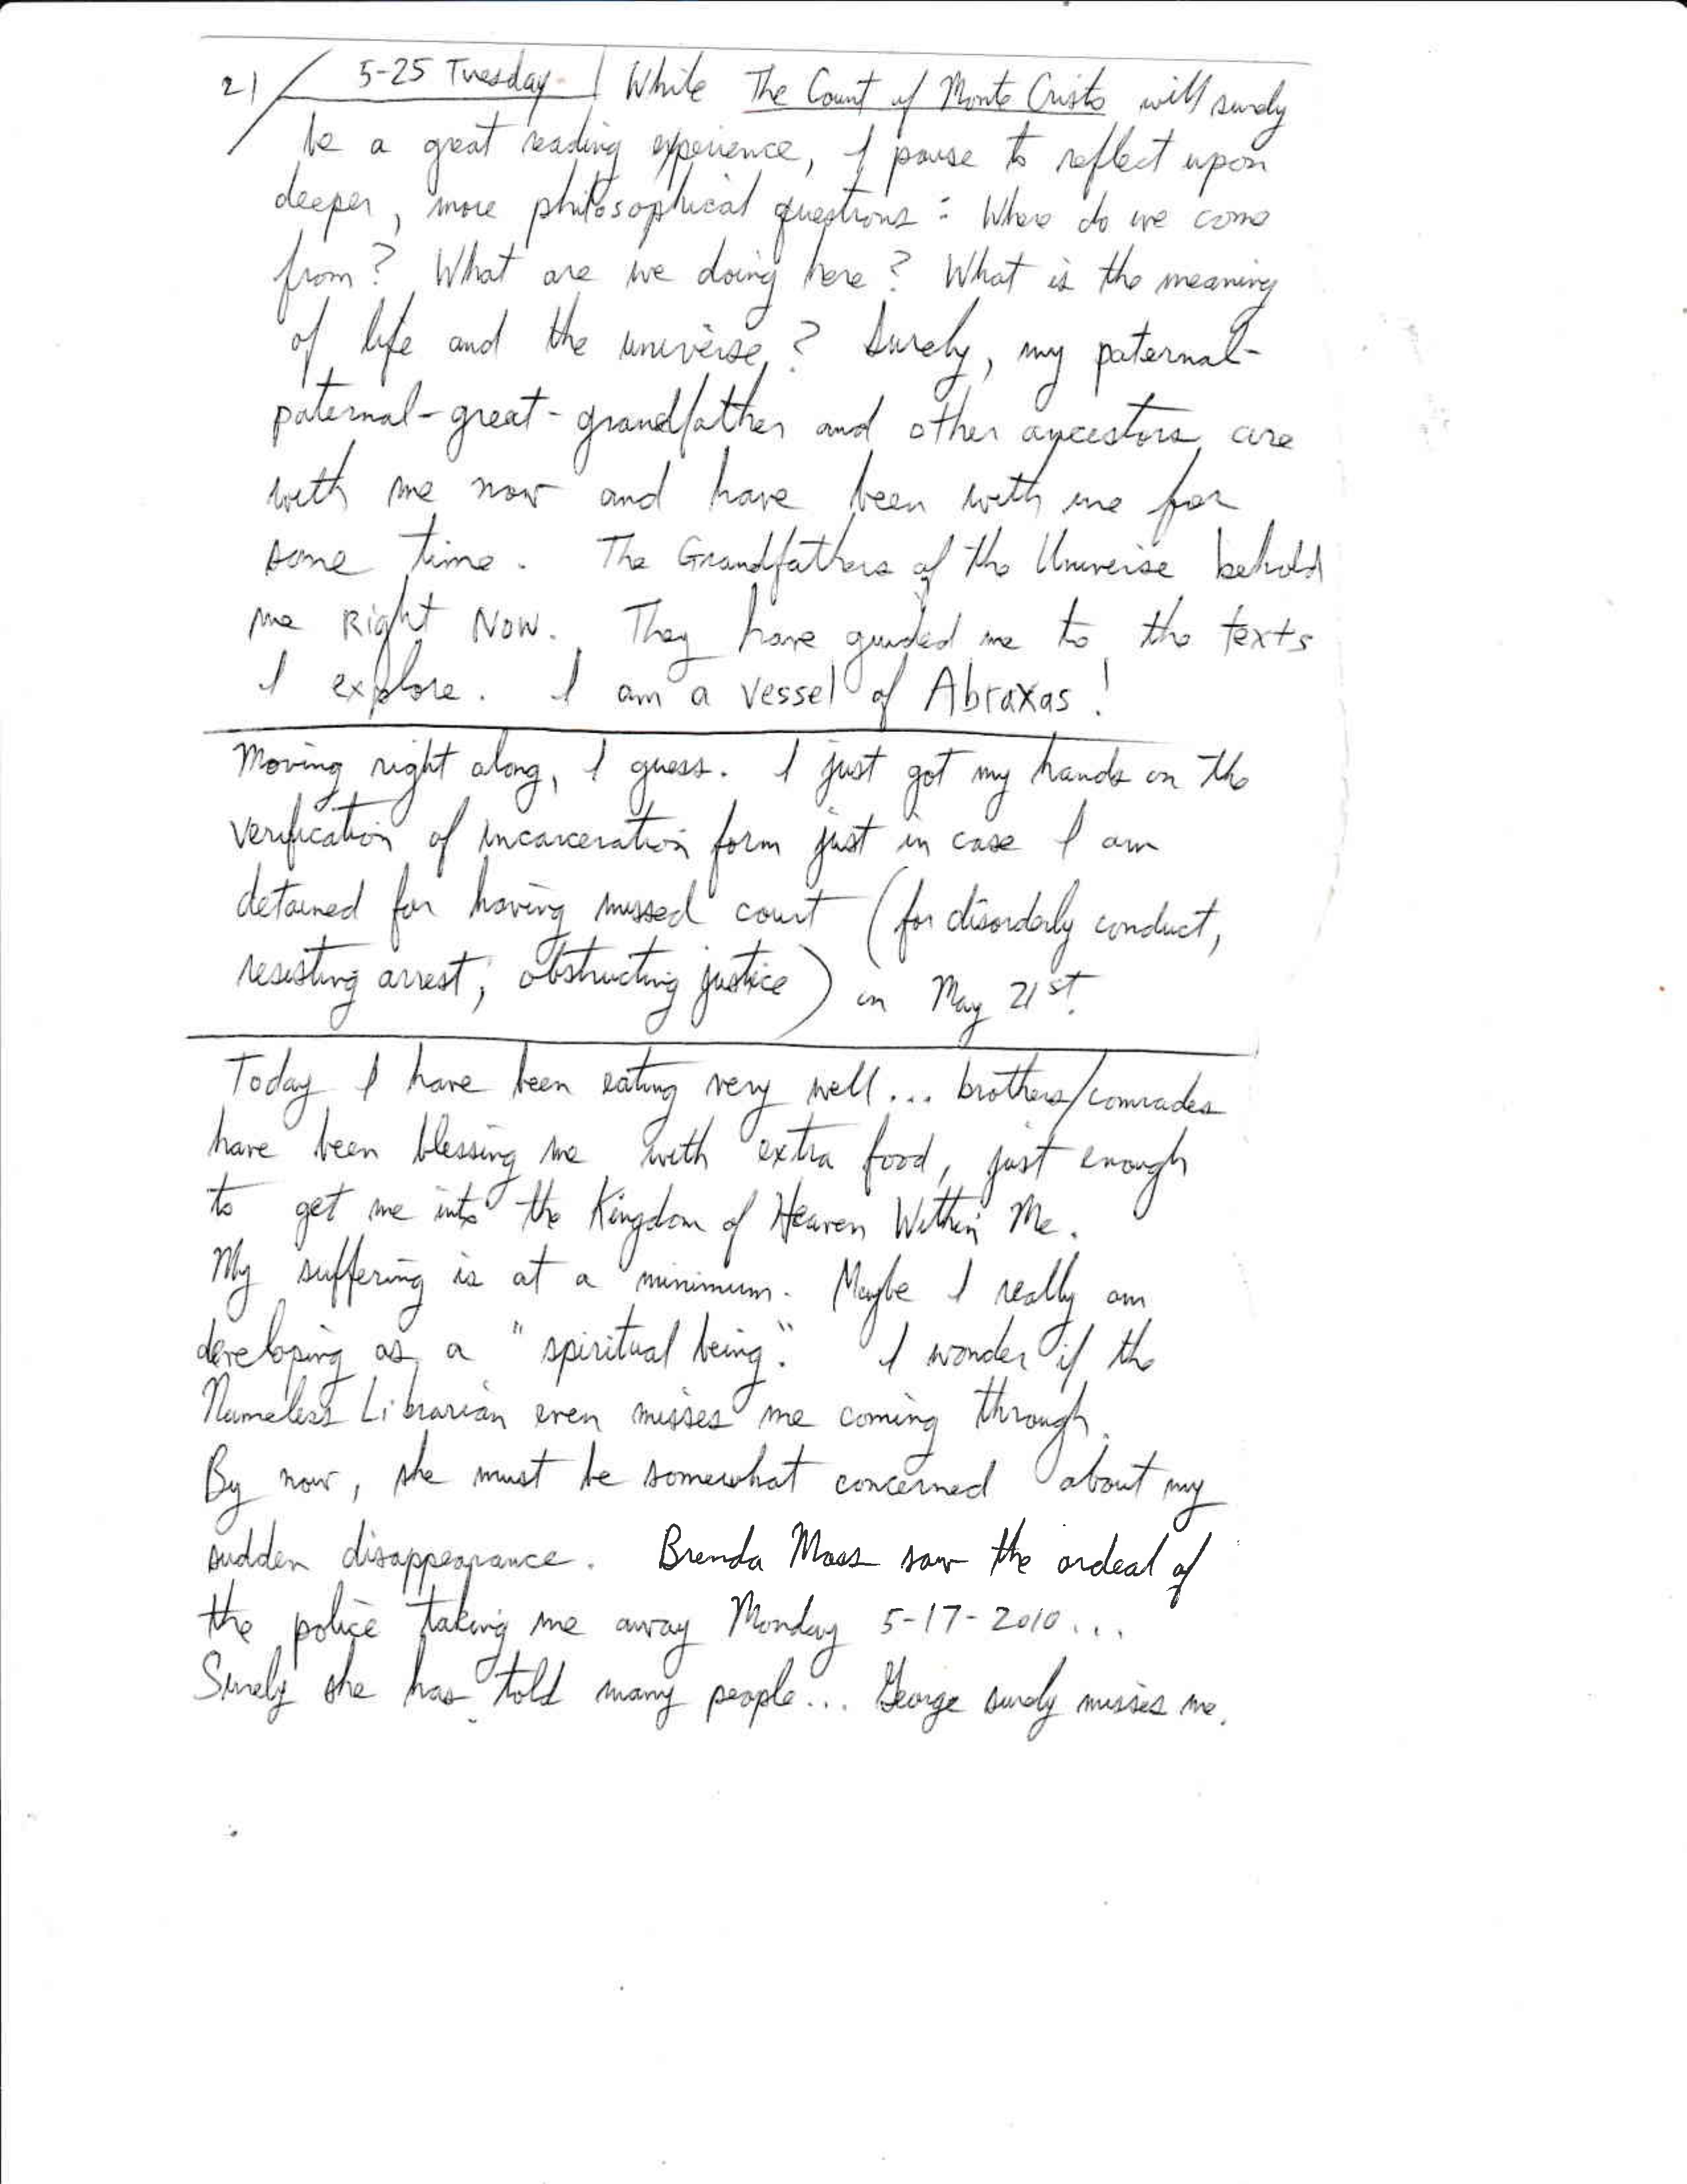 21/ 5-25 Tuesday. | While The Count of Monte Cristo will surely
be a great reading experience, I pause to reflect upon
deeper, more philosophical questions: Where do we come
from? What are we doing here? What is the meaning
of life and the universe? Surely, my paternal-
paternal-great-grandfather and other ancestors are
with me now and have been with me for
some time. The Grandfathers of the Universe behold
me Right Now. They have guided me to the texts
I explore. I am a vessel of Abraxas!
Moving right along, I guess. I just got my hands on the
verification of incarceration form just in case I am
detained for having missed court (for disorderly conduct,
resisting arrest; obstructing justice) on May 21st.
Today I have been eating very well... brothers/comrades
have been blessing me with extra food, just enough
to get me into the Kingdom of Heaven Within Me.
My suffering is at a minimum. Maybe I really am
developing as a "spiritual being." I wonder if the
Nameless Librarian even misses me coming through.
By now, she must be somewhat concerned about my
sudden disappearance. Brenda Moss saw the ordeal of
the police taking me away Monday 5-17-2010...
Surely she has told many people... George surely misses me.